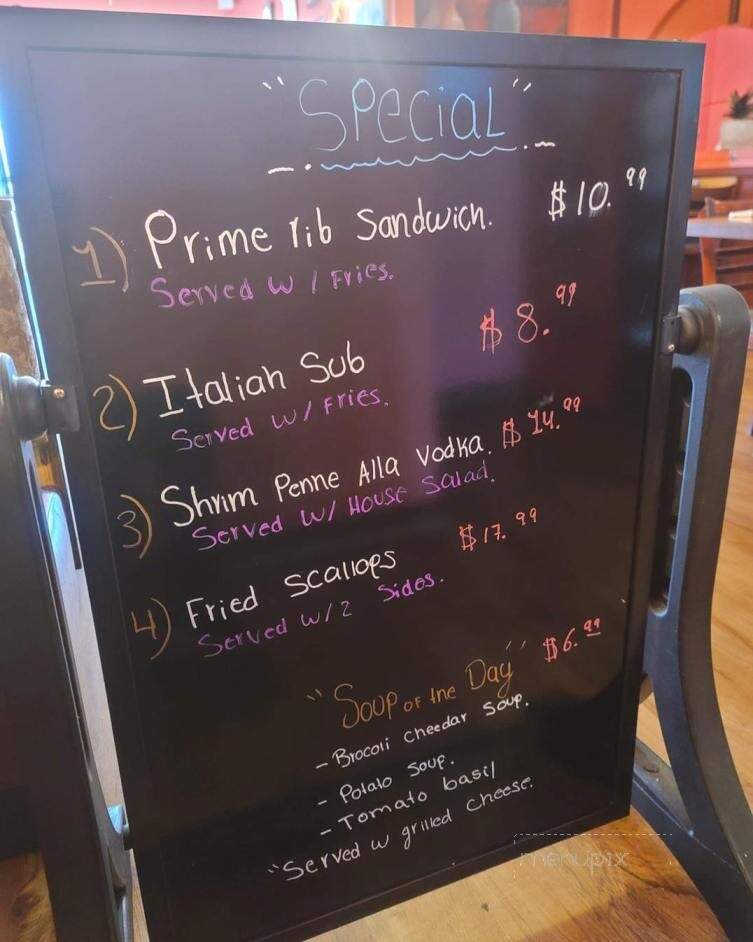 "SPECIAL"
1) Prime rib Sandwich. $10.99
Served w/ Fries.
2) Italian Sub $8.99
Served w/ Fries.
3) Shrim Penne Alla Vodka. $14.99
Served w/ House Salad.
4) Fried Scallops $17.99
Served w/2 Sides.
"Soup of the Day" $6.99
- Brocoli cheedar Soup.
- Potato Soup.
- Tomato basil
"Served w grilled cheese.
menupix